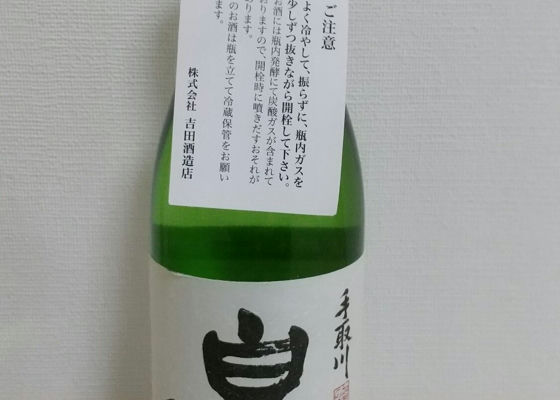 ご注意
よく冷やして、振らずに、瓶内ガスを
少しずつ抜きながら開栓して下さい。
お酒には瓶内発酵にて炭酸ガスが含まれて
おりますので、開栓時に噴きだすおそれが
ります。
のお酒は瓶を立てて冷蔵保管をお願い
ます。
株式会社 吉田酒造店
手取川
白